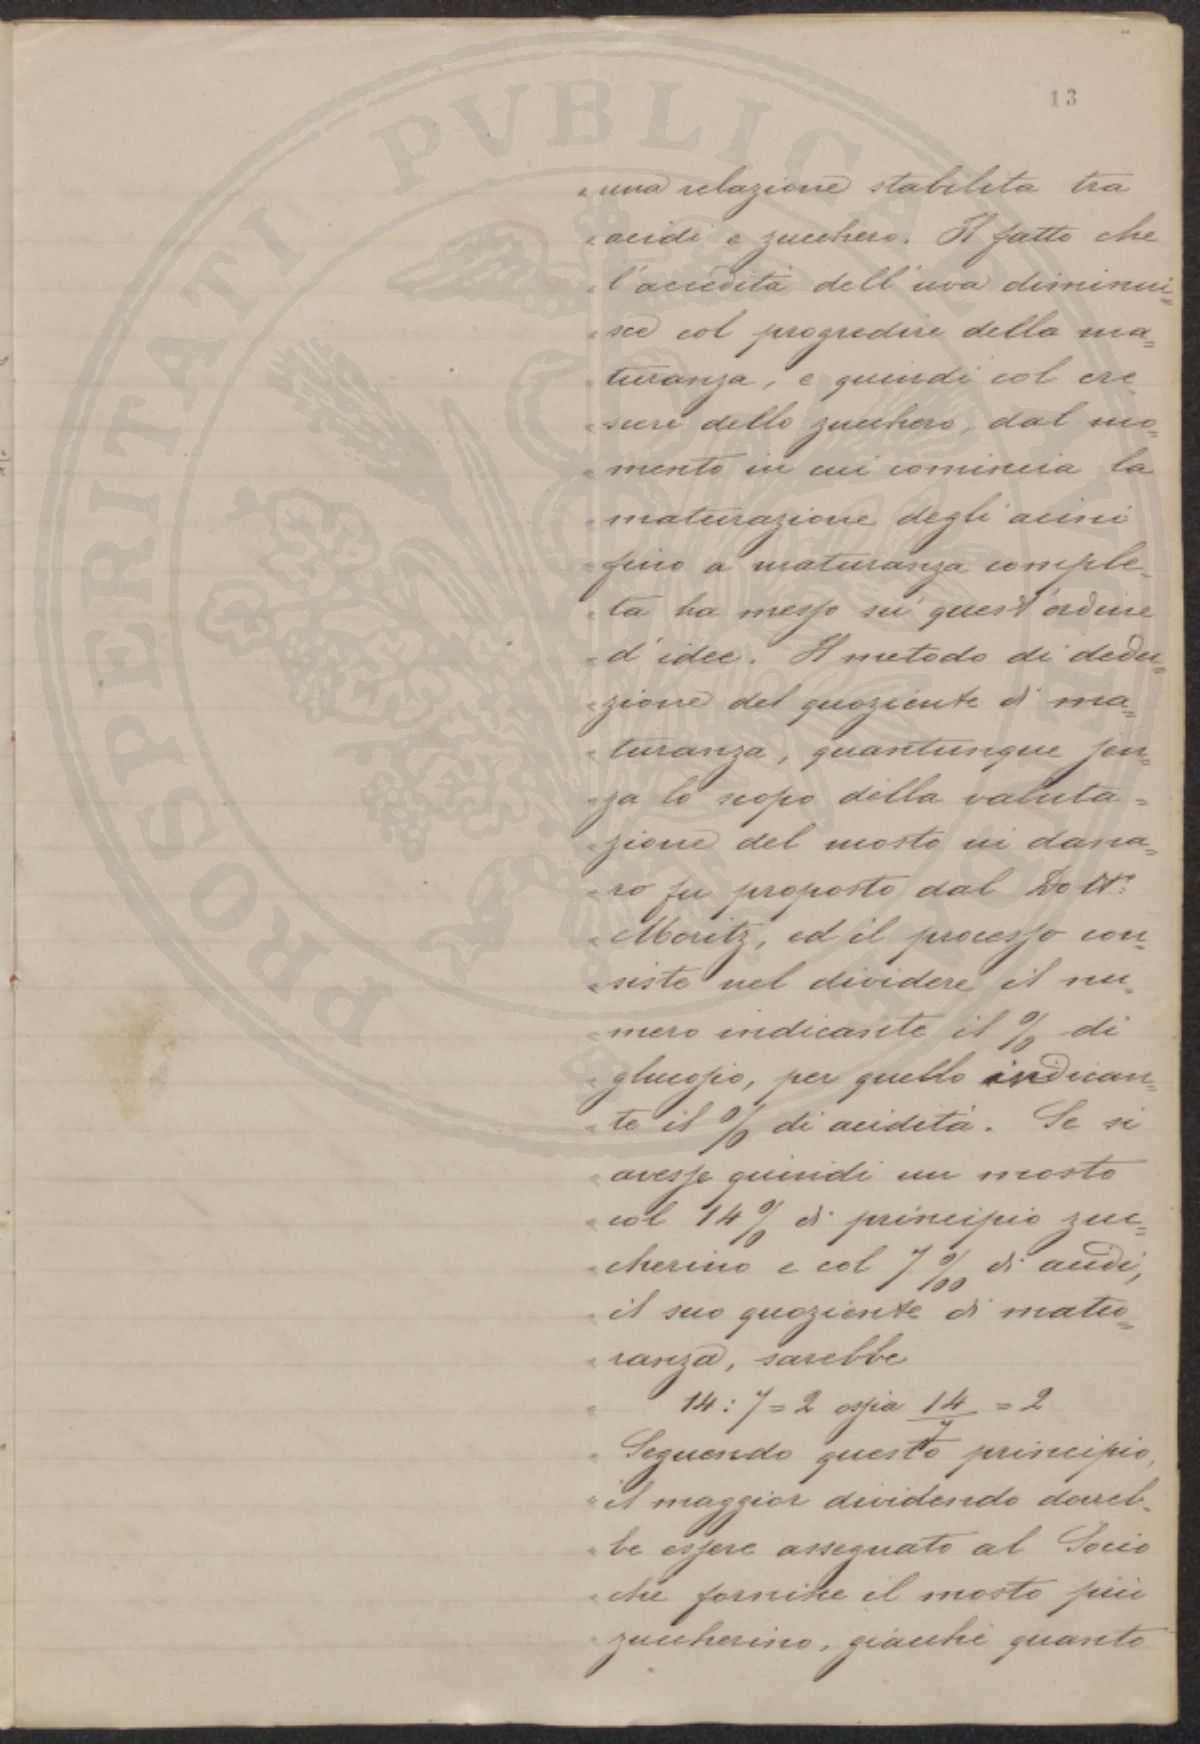 13
„ una relazione stabilita tra
„ acidi e zucchero. Il fatto che
„ l'acidità dell'uva diminui=
„ sce col progredire della ma=
„ turanza, e quindi col cre
„ scere dello zucchero, dal mo=
„ mento in cui comincia la
„ maturazione degli acini
„ fino a maturanza comple=
„ ta ha messo su quest'ordine
„ d'idee. Il metodo di dedu=
„ zione del quoziente di ma=
„ turanza, quantunque sen=
„ za lo scopo della valuta=
„ zione del mosto in dana=
„ ro fu proposto dal Dott.r
„ Moritz, ed il processo con=
„ siste nel dividere il nu=
„ mero indicante il % di
„ glucosio, per quello indican=
„ te il % di acidità. Se si
„ avesse quindi un mosto
„ col 14% di principio zuc=
„ cherino e col 7‰ di acidi,
„ il suo quoziente di matu=
„ ranza, sarebbe
„ 14:7=2 ossia 14/7 = 2
„ Seguendo questo principio,
„ il maggior dividendo dovreb=
„ be essere assegnato al Socio
„ che fornisce il mosto più
„ zuccherino, giacchè quanto
PROSPERITATI PVBLICAE